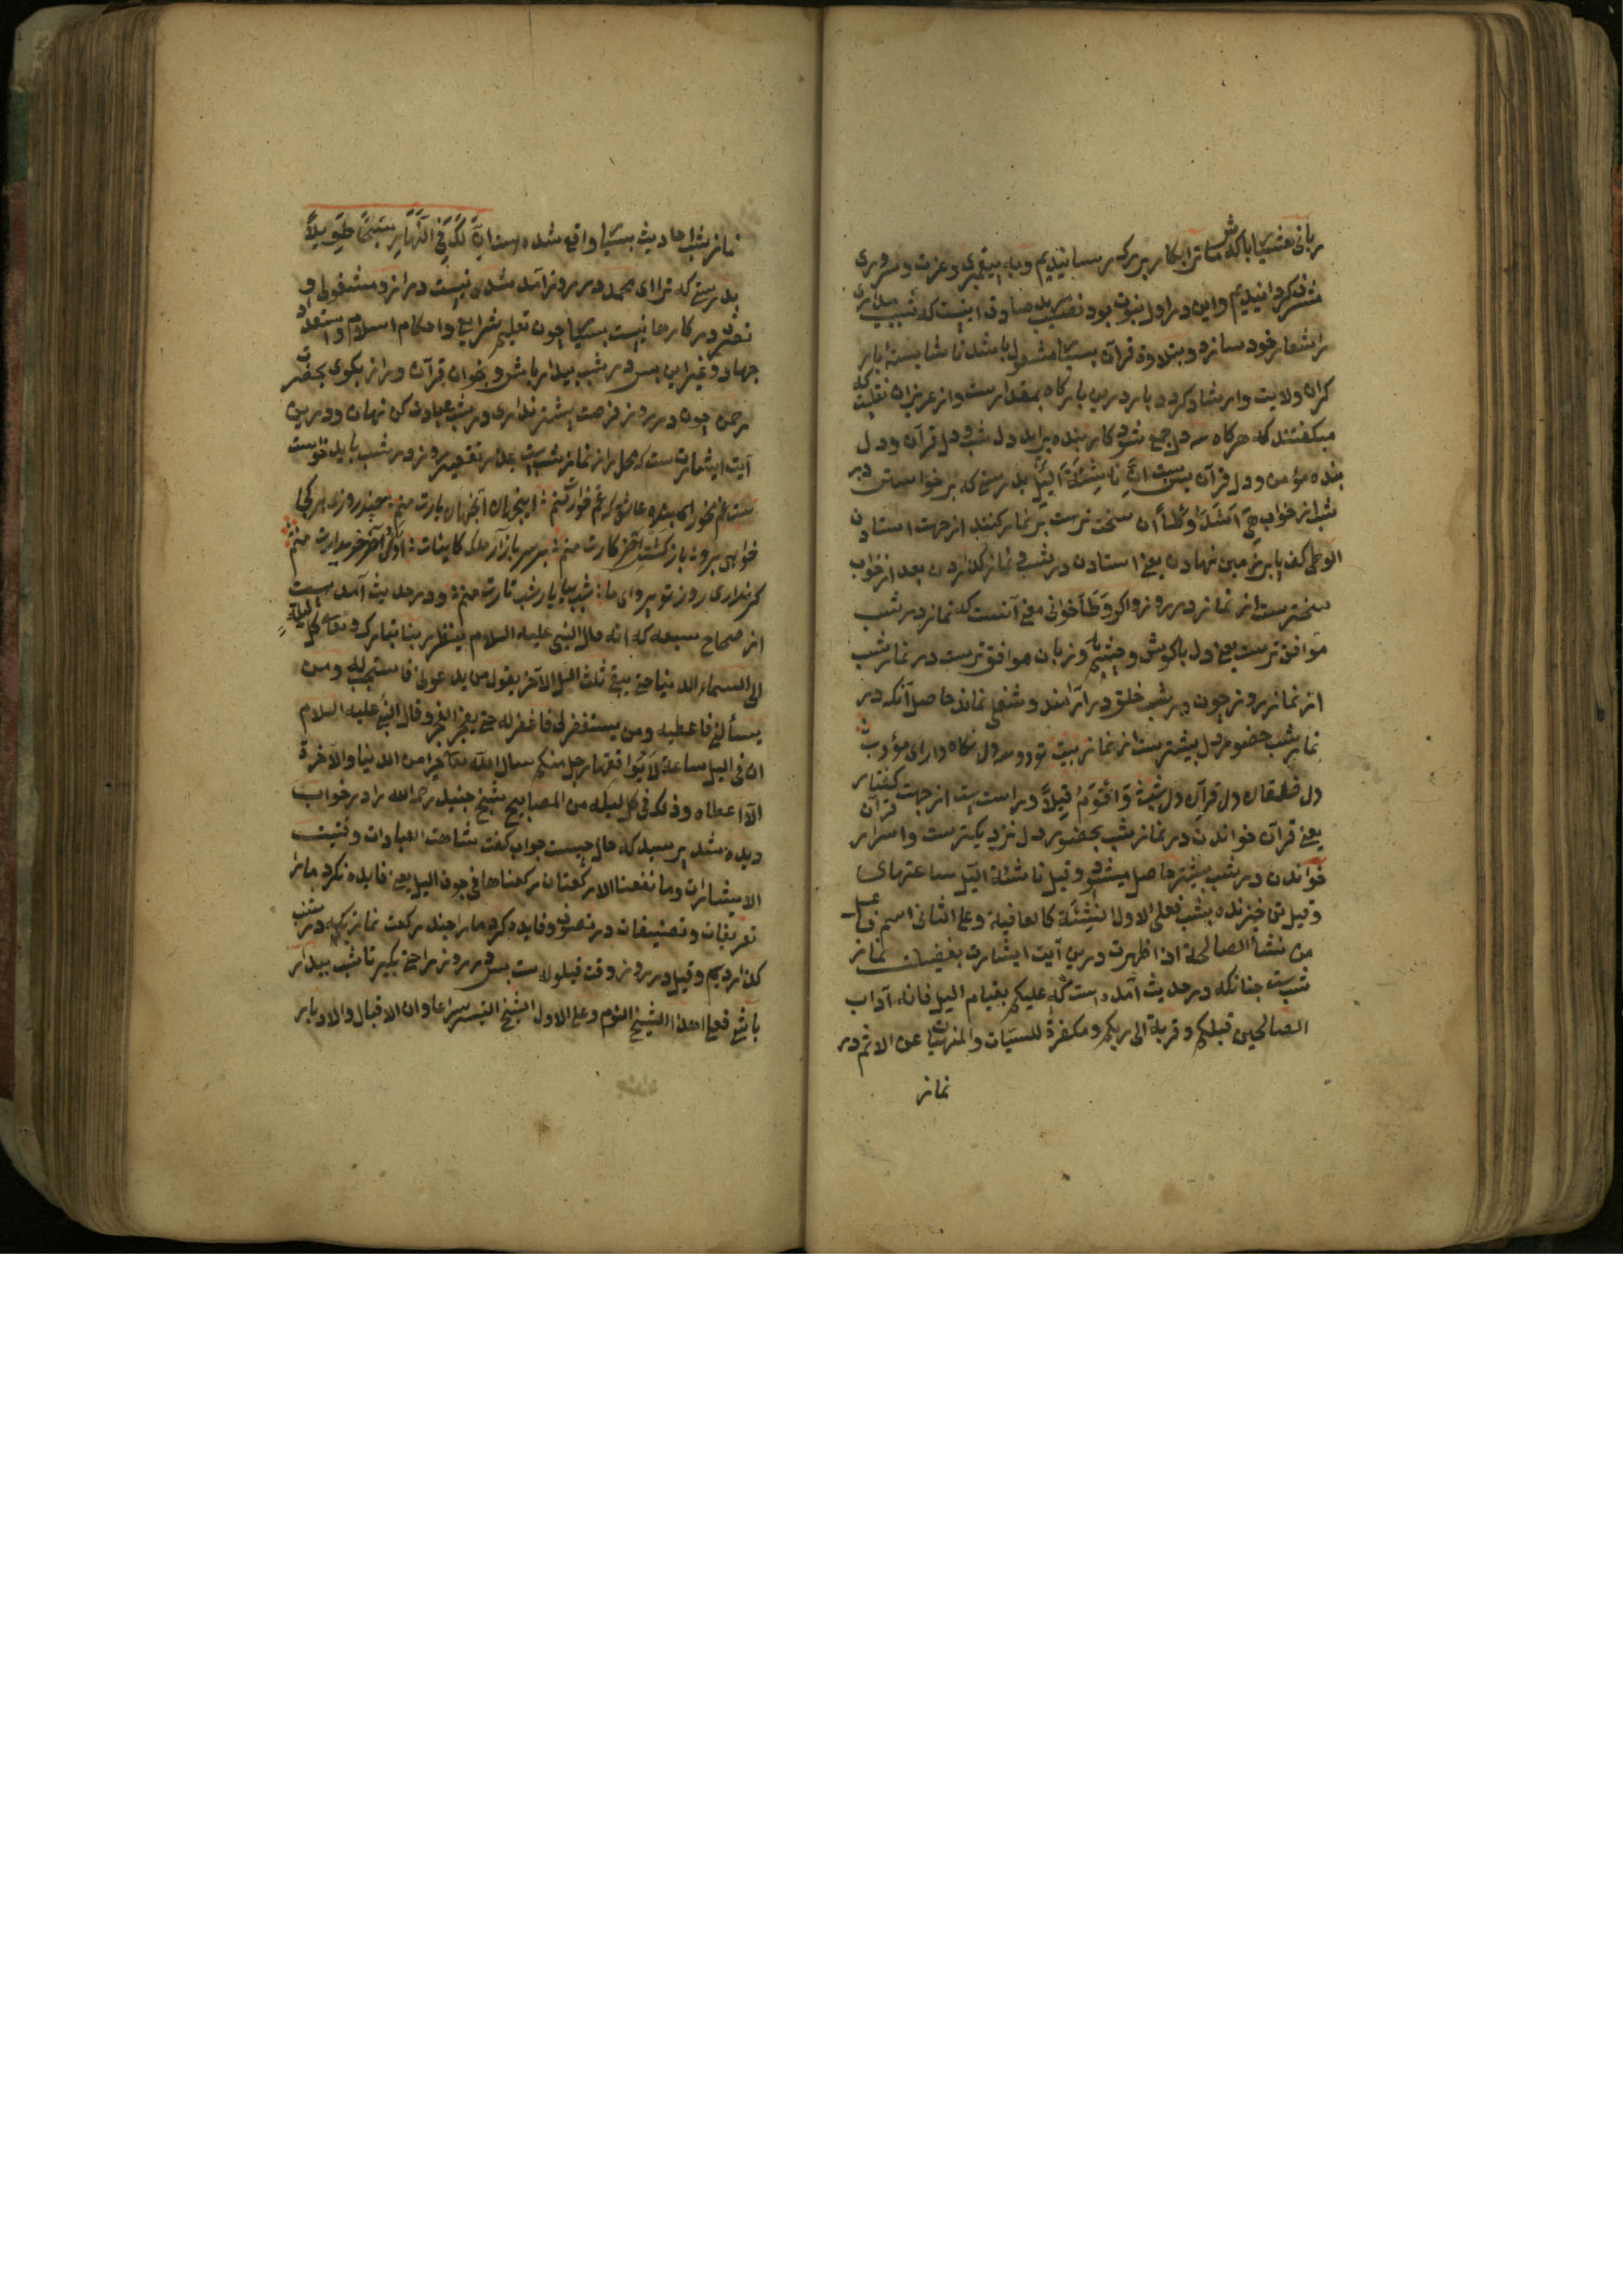 ربانی هشیار باکه ما ترا بکار بزرک رسانیدیم و به پیغمبری و عزت و سروری
مشرف کردانیدیم و این در اول نبوت بود نصیب مرید صادق اینست که شب بیداری
را شعار خود سازد و بتلاوة قرآن بسیار مشغول باشد تا شایسته بار
کران ولایت و ارشاد کردد بار درین بارکاه بمقدارست و از عزیزان نقلیت که
میکفتند که هرکاه سه دل جمع شود کار بنده براید دل شب و دل قرآن و دل
بنده مؤمن و دل قرآن یس است اِنَّ نَاشِئَةَ الَّیْلِ بدرستی که برخواستن در
شب از خواب هِیَ اَشَدُّ وَطْأً آن سخت ترست بر نماز کنند از جهت استادن
الوطی کف پا بر زمین نهادن یعنی استادن در شب و نماز کذاردن بعد از خواب
سخترست از نماز در روز و اکر وَطَأ خوانی معنی آنست که نماز در شب
موافق ترست یعنی دل با کوش و چشم و زبان موافق ترست در نماز شب
از نماز روز چون در شب خلق در آرامند و شغلی نماند حاصل آنکه در
نماز شب حضور دل بیشترست از نماز بیت تو دو سه دل نکاه دار ای مؤدب
دل قرآن دل شب وَ اَقْوَمُ قِیلًا و راست است از جهت کفتار
یعنی قرآن خواندن در نماز شب بحضور دل نزدیکترست و اسرار قرآن
خواندن در شب بیشتر حاصل میشود و قیل ناشئة الیل ساعتهای
و قیل تن خیزنده بشب فعلی الاول النشئة کالعافیة و علی الثانی اسم فاعل
من نشأ الصالحة اذا ظهرت درین آیت اشارت بفضیلت نماز
شبست چنانکه در حدیث آمده است که علیکم بقیام الیل فانه آداب
الصالحین قبلکم و قربة الی ربکم و مکفرة للسیات و المنهیات عن الاثم در
نماز
نماز شب احادیث بسیار واقع شده است اِنَّ لَکَ فِی النَّهَارِ سَبْحًا طَوِیلًا
بدرستی که ترا ای محمد در روز آمد شدن نیست دراز و مشغولی و
تصرف در کارها نیست بسیار چون تعلیم شرایع و احکام اسلام و استعداد
جهاد و غیر این پس در شب بیدار باش و بخوان قرآن و راز بکوی بحضرت
رحمن چون در روز فرصت بیشتر نداری در شب عبادت کن نهان و درین
آیت اشارتست که محل راز نماز شبست عذر تقصیر روز در شب باید خواست
بیت غم مخور ای عاشق که غم خوارت منم اینجهان آنجهان یارت منم چند روزی هر کجا
خواهی برو باز کشت آخر کارت منم بر سر بازار ملک کاینات اول و آخر خریدارت منم
کر نداری روز تو پروای ما شب بیا یار شب تارت منم و در حدیث آمده است
از صحاح سبعه که انه قال النبی علیه السلام ینظر ربنا تبارک و تعالی کل لیلة
الی السماء الدنیا حتی یبقی ثلث الیل الآخر یقول من یدعونی فاستجب له و من
یسألنی فاعطیه و من یستغفرلی فاغفر له حتی ینفجر الفجر و قال النبی علیه السلام
ان فی الیل ساعة لا یوافقها رجل منکم سال الله تعالی خیرا من الدنیا و الآخرة
الا اعطاه و ذلک فی کل لیلة من المصابیح شیخ جنید رحمه الله را در خواب
دیده شد پرسید که حال چیست جواب کفت شاهت العبادات و فنیت
الاشارات و ما نفعنا الا رکعتان رکعناها فی جوف الیل یعنی فایده نکرد مارا
تعریفات و تصنیفات در تصوف و فایده کرد مارا چند رکعت نماز که در شب
کذاردیم و قیل در روز وقت قیلوله است پس در روز راحتی بکیر تا شب بیدار
باشی فعلی هذا السبح النوم و علی الاول السبح التسیر سراعا و ان الاقبال و الادبار